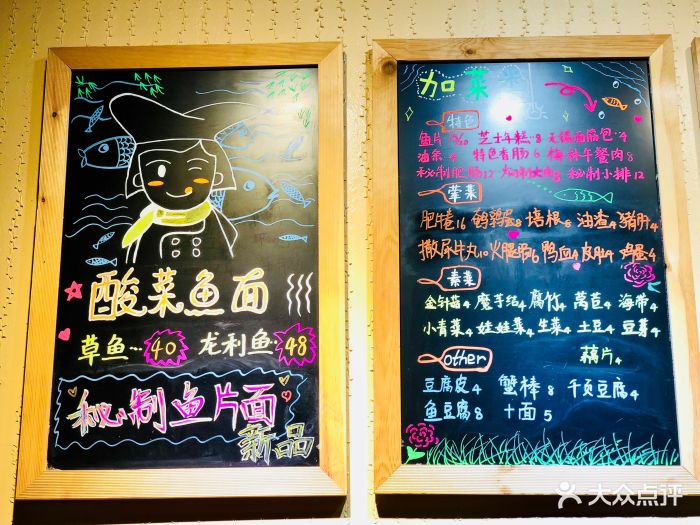 酸菜鱼面
草鱼…40 龙利鱼·48
秘制鱼片面
新品
加菜
特色
鱼片 芝士年糕8 无锡面筋包·4
油条4 特色香肠6 梅林午餐肉8
秘制肥肠12 秘制小排12
荤菜
肥牛卷16 鹌鹑蛋8 培根8 油渣4 猪肝4
撒尿牛丸10 火腿肠6 鸭血4 皮肚4 鸡蛋4
素菜
金针菇4 魔芋结4 腐竹4 莴苣4 海带4
小青菜4 娃娃菜4 生菜4 土豆4 豆芽4
other 藕片4
豆腐皮4 蟹棒8 千页豆腐4
鱼豆腐8 干面5
大众点评